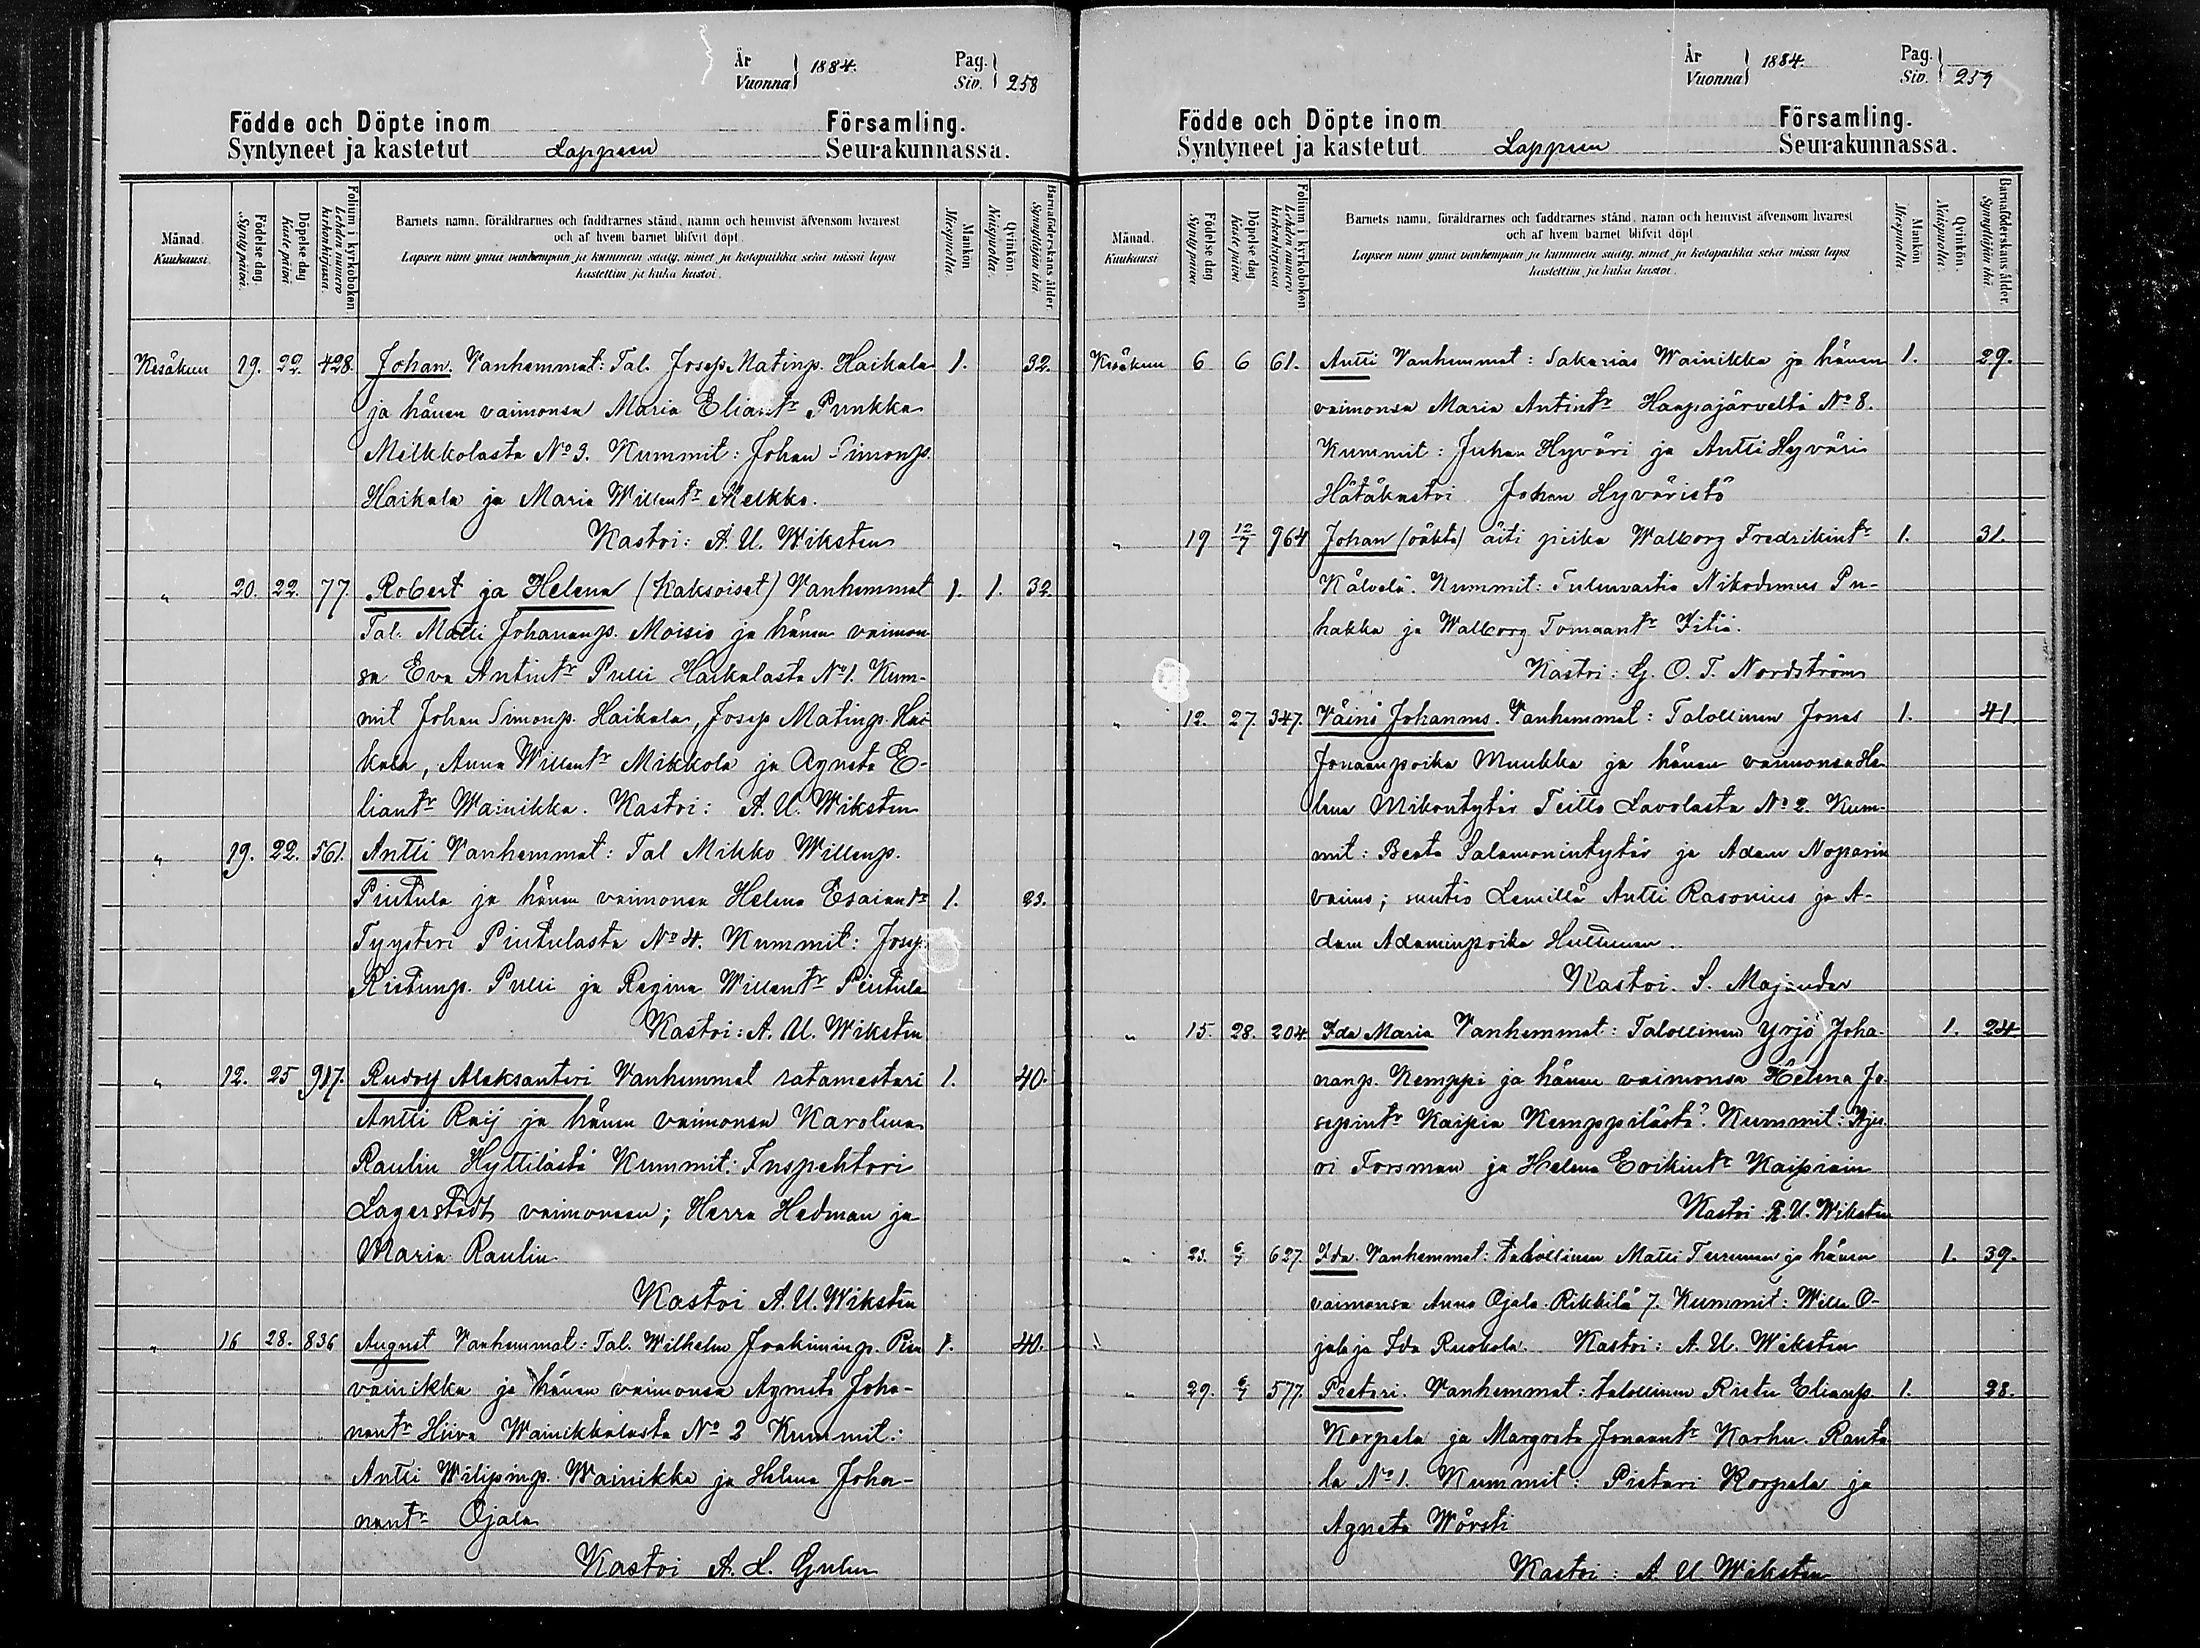 År
Vuonna } 1884.
Pag.
Siv. } 258
Födde och Döpte inom Församling.
Syntyneet ja kastetut Lappeen Seurakunnassa.
Månad.
Kuukausi
Födelse dag.
Syntypäivä.
Döpelse dag
Kaste päivä
Folium i kyrkoboken
Lehden numero kirkonkirjassa.
Barnets namn, föräldrarnes och faddrarnes stånd, namn och hemvist äfvensom hvarest
och af hvem barnet blifvit döpt.
Lapsen nimi ynnä vanhempain ja kummein sääty, nimet ja kotopaikka sekä missä lapsi
kastettiin ja kuka kastoi.
Mankön
Miespuolia.
Qvinkön.
Naispuolia.
Barnaföderskans ålder
Synnyttäjän ikä.
Kesäkuu 19. 22. 428. Johan. Vanhemmat: Tal. Josep Matinp. Haikala 1. 32.
ja hänen vaimonsa Maria Eliantr Punkka
Melkkolasta No 3. Kummit: Johan Simonp.
Haikala ja Maria Willentr Melkko.
Kastoi: A. U. Wiksten
" 20. 22. 77. Robert ja Helena (Kaksoiset) Vanhemmat 1. 1. 32.
Tal. Matti Johananp. Moisio ja hänen vaimon-
sa Eva Antintr Pulli Haikalasta No 1. Kum-
mit Johan Simonp. Haikala, Josep Matinp. Hai-
kala, Anna Willentr Mikkola ja Agneta E-
liantr Wainikka. Kastoi: A. U. Wiksten
" 19. 22. 561. Antti Vanhemmat: Tal Mikko Willenp.
Piutula ja hänen vaimonsa Helena Esaiantr 1. 23.
Tyysteri Piutulasta No 4. Kummit: Josep
Ristonp. Pulli ja Regina Willentr Piutula
Kastoi: A. U. Wiksten
" 12. 25 917. Rudolf Aleksanteri Vanhemmat ratamestari 1. 40.
Antti Raij ja hänen vaimonsa Karolina
Raulin Hyttilästä Kummit: Inspehtori
Lagerstedt vaimoneen; Herra Hedman ja
Maria Raulin
Kastoi A. U. Wiksten
" 16 28. 836 August Vanhemmat: Tal. Wilhelm Joakiminp. Pien 1. 40.
vainikka ja hänen vaimonsa Agneta Joha-
nantr Hiiva Wainikkalasta No 2 Kummit:
Antti Wilipinp. Wainikka ja Helena Joha-
nantr Ojala
Kastoi A. L. Gulin
År
Vuonna } 1884.
Pag.
Siv. } 259
Födde och Döpte inom Församling.
Syntyneet ja kastetut Lappeen Seurakunnassa.
Månad.
Kuukausi
Födelse dag
Syntypäivä
Döpelse dag
Kaste päivä
Folium i kyrkoboken
Lehden numero kirkonkirjassa
Barnets namn, föräldrarnes och faddrarnes stånd, namn och hemvist äfvensom hvarest
och af hvem barnet blifvit döpt.
Lapsen nimi ynnä vanhempain ja kummein sääty, nimet ja kotopaikka sekä missä lapsi
kastettiin ja kuka kastoi.
Mankön
Miespuolia
Qvinkön.
Naispuolia.
Barnaföderskans ålder.
Synnyttäjän ikä.
Kesäkuu 6 6 61. Antti Vanhemmat: Sakarias Wainikka ja hänen 1. 29.
vaimonsa Maria Antintr Haapajärveltä No 8.
Kummit: Juhan Hyväri ja Antti Hyväri
Hätäkastoi Johan Hyväristö
" 19 12/7 964 Johan (äpärä) äiti piika Walborg Fredrikintr 1. 31.
Kälvelä. Kummit: Tulenvartia Nikodemus Pu-
hakka ja Walborg Tomaantr Itiä.
Kastoi: G. O. T. Nordström
" 12. 27. 347. Väinö Johannes. Vanhemmat: Talollinen Jonas 1. 41.
Jonaanpoika Muukka ja hänen vaimonsa He-
lena Mikontytär Teitto Lavolasta No 2. Kum-
mit: Beata Salomonintytär ja Adam Noparin
vaimo; suntio Lemillä Antti Rasonius ja A-
dam Adaminpoika Huttunen.
Kastoi. S. Majander
" 15. 28. 204. Ida Maria Vanhemmat: Talollinen Yrjö Joha- 1. 24
nanp. Kemppi ja hänen vaimonsa Helena Jo-
sepintr Kaipia Kemppilästä. Kummit:
Forsman ja Helena Erikintr Kaipiain
Kastoi: A. U. Wiksten
" 23. 6/7 627. Ida. Vanhemmat: talollinen Matti Turunen ja hänen 1. 39.
vaimonsa Anna Ojala Rikkilä 7. Kummit: Wille O-
jala ja Ida Ruokola. Kastoi: A. U. Wiksten
" 29. 6/7 577. Pietari. Vanhemmat: talollinen Ristu Elianp. 1. 38.
Korpela ja Margreta Jonaantr Karhu. Ranta-
la No 1. Kummit: Pietari Korpela ja
Agneta Wörsti
Kastoi: A. U Wiksten